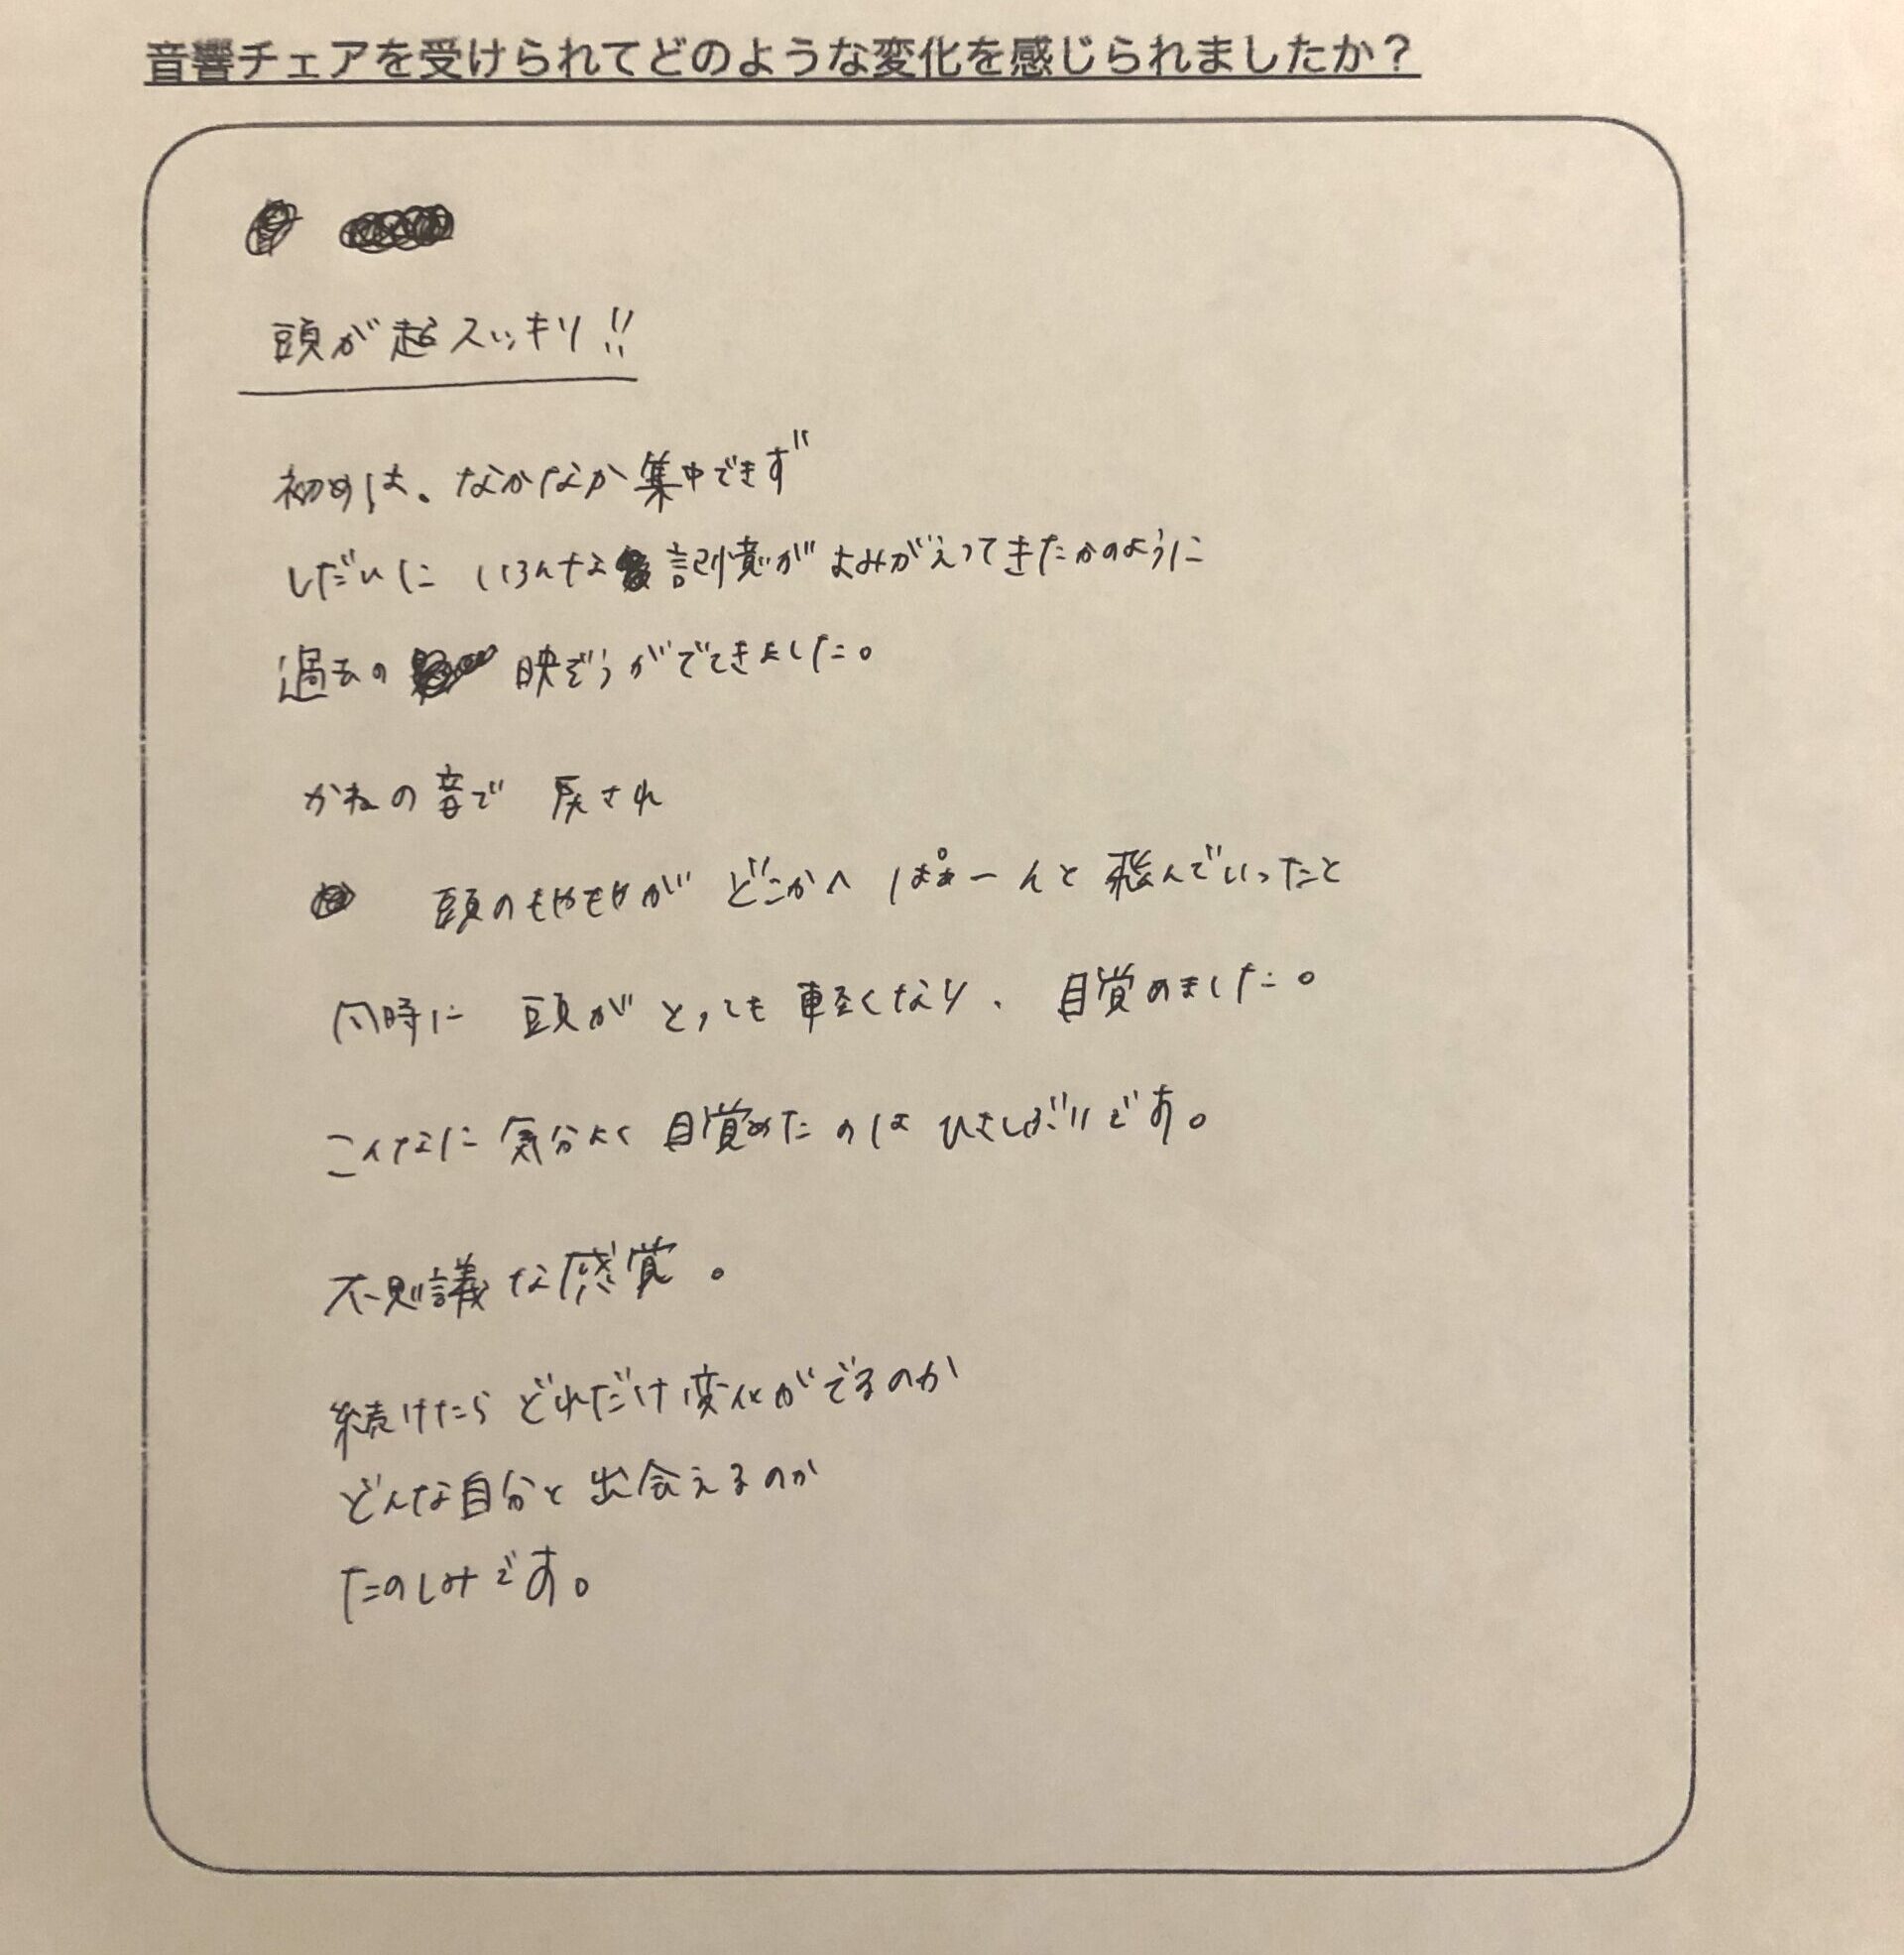 音響チェアを受けられてどのような変化を感じられましたか？
頭が超スッキリ!!
初めは、なかなか集中できず
しだいに いろんな記憶がよみがえってきたかのように
過去の 映ぞうがでてきました。
かねの音で 戻され
頭のもやもやが どこかへ ぱぁーんと 飛んでいったと
同時に 頭が とっても 軽くなり、目覚めました。
こんなに 気分よく 目覚めたのは ひさしぶりです。
不思議な感覚。
続けたら どれだけ変化がでるのか
どんな自分と 出会えるのか
たのしみです。